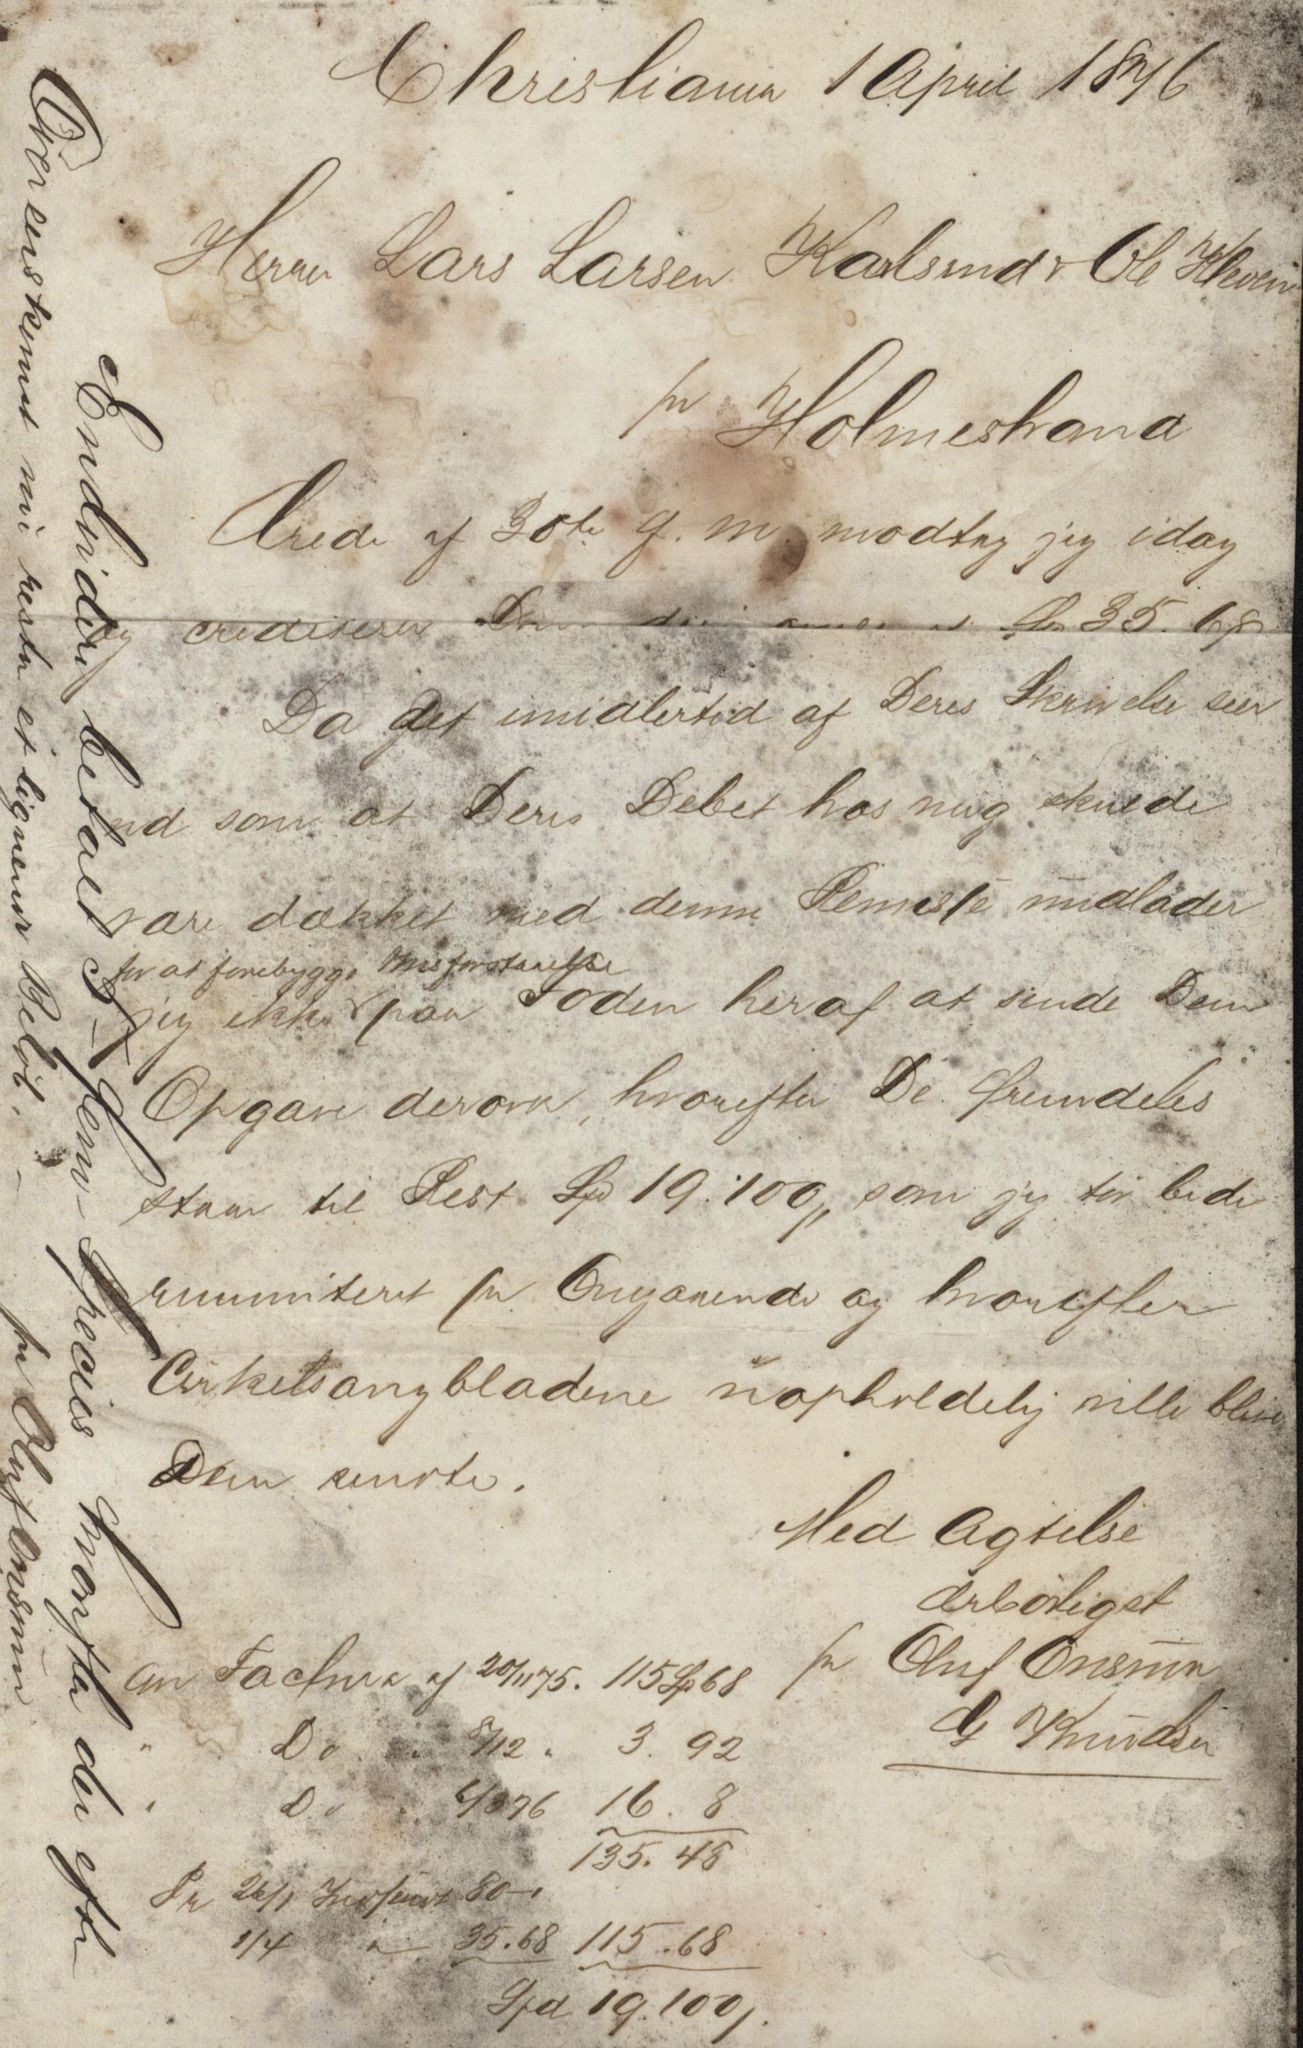 Christiania 1 April 1876
Herrer Lars Larsen Kalsrud & Ole Hvem
pr Holmestrand
Ærede af 30te f. M. modtog jeg idag
og crediterer Dem 35.68
Da det imidlertid af Deres Skrivelse seer
ud som at Deres Debet hos mig skulde
være dækket med denne Remisse undlader
for at forebygge Misforstaaelse
jeg ikke paa Foden heraf at sende Dem
Opgave derover, hvorefter De fremdeles
staar til Rest Spd 19.100, som jeg tør bede
remmiteret pr Omgaaende og hvorefter
Cirkelsaugbladene uopholdelig ville blive
Dem sendte.
Med Agtelse
ærbødigst
pr Oluf Onsum
G Knudsen
An Factura af 20/11 75. 115 Sp 68
" Do " 8/12 " 3. 92
" Do " 6/3 76 16. 8
135. 48
Pr 26/1 Indsendt 80-
1/4 " 35.68 115.68
Spd 19.100/.
Endvidere betalt 5 - fem - Species hvorfter der efter
Overenskomst nu rester et lignende Beløb. -
pr Oluf Onsum